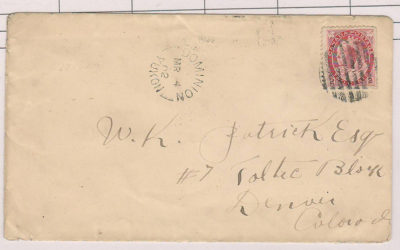 DOMINION
MR 4
02
YUKON
W. K. Patrick Esq
#7 Toltec Block
Denver
Colorado